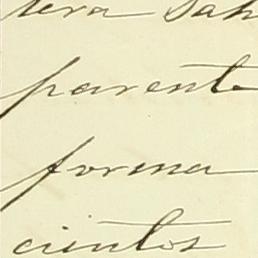 tera sah
parent
forma
cientos